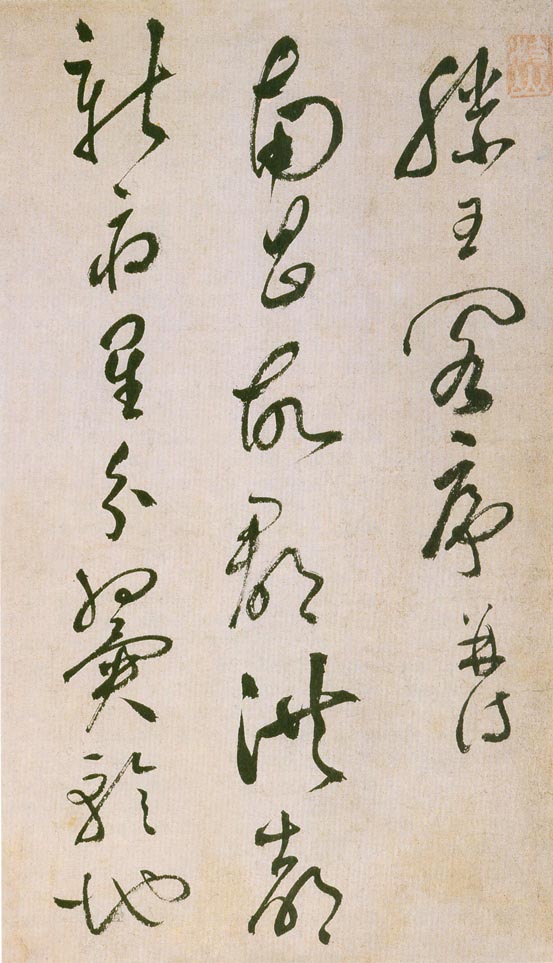 滕王閣序並詩
南昌故郡洪都
新府星分翼軫地